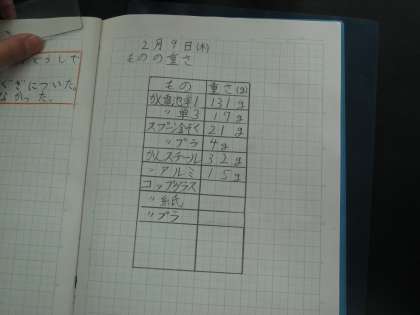 どうして
くぎについた。
なかった。
2月9日(木)
ものの重さ
もの 重さ(g)
かん電池単1 131g
〃 単3 17g
スプーン金ぞく 21g
〃プラ 4g
かんスチール 32g
〃アルミ 15g
コップガラス
〃紙
〃プラ